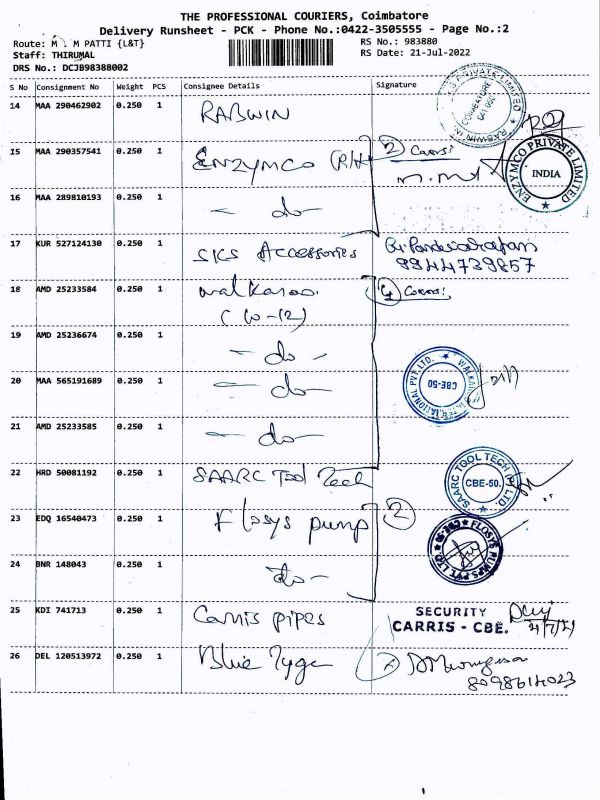 THE PROFESSIONAL COURIERS, Coimbatore
Delivery Runsheet - PCK - Phone No.:0422-3505555 - Page No.:2
Route: M . M PATTI {L&T}
RS No.: 983880
Staff: THIRUMAL
RS Date: 21-Jul-2022
DRS No.: DCJB98388002
S No Consignment No Weight PCS Consignee Details Signature
14 MAA 290462902 0.250 1 RABWIN
COIMBATORE
641 006
15 MAA 290357541 0.250 1 Enzymco (R/H) 2
ENZYMCO PRIVATE LIMITED
INDIA
16 MAA 289810193 0.250 1 - do -
17 KUR 527124130 0.250 1 SKS Accessories
9944739857
18 AMD 25233584 0.250 1 walkaroo. 4
(W-12)
19 AMD 25236674 0.250 1 - do -
20 MAA 565191689 0.250 1 - do -
WALKAROO INTERNATIONAL PVT LTD.
CBE-50
21 AMD 25233585 0.250 1 - do -
22 HRD 50081192 0.250 1 SAARC Tool Tech
SAARC TOOL TECH (P) LTD.
CBE-50.
23 EDQ 16540473 0.250 1 Flosys pump 2
FLOSYS PUMPS PVT. LTD.
24 BNR 148043 0.250 1 - do -
25 KDI 741713 0.250 1 Carris pipes
SECURITY
CARRIS - CBE.
26 DEL 120513972 0.250 1 Blue Tyga
8098614023